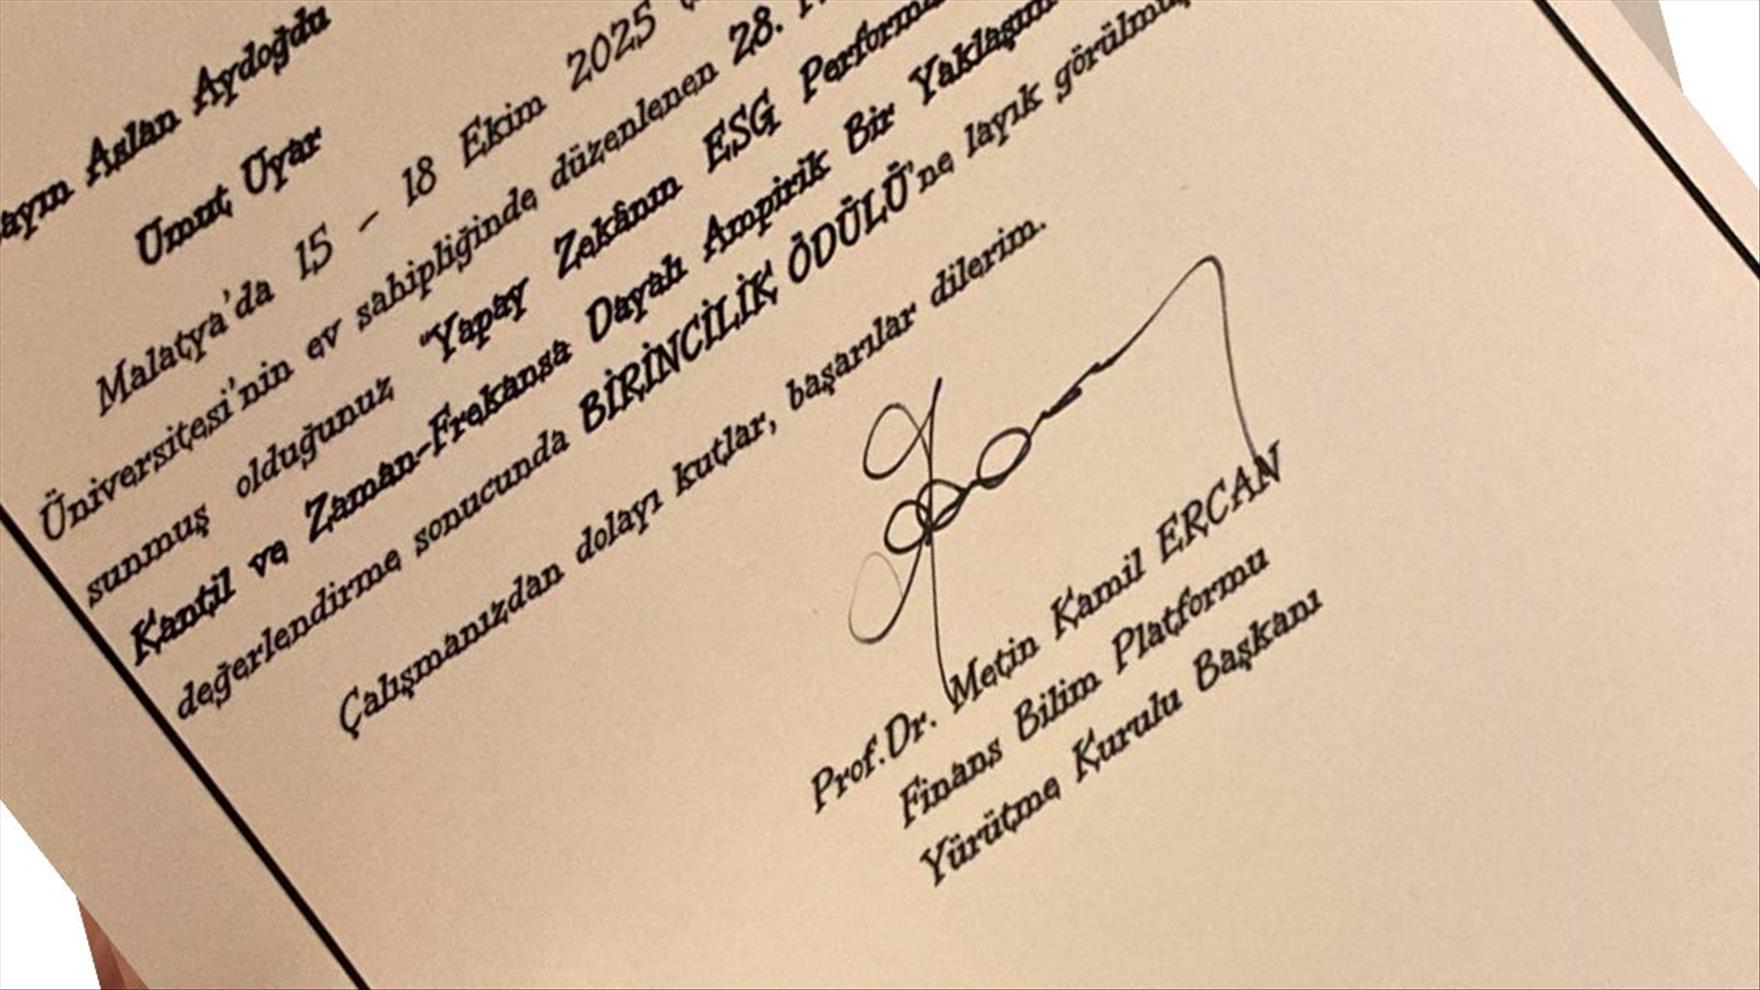 ayın Aslan Aydoğdu
Umut Uyar
Malatya'da 15 – 18 Ekim 2025
Üniversitesi'nin ev sahipliğinde düzenlenen 28.
sunmuş olduğunuz "Yapay Zekânın ESG
Kantil ve Zaman-Frekansa Dayalı Ampirik Bir Yaklaşım
değerlendirme sonucunda BİRİNCİLİK ÖDÜLÜ'ne layık
Çalışmanızdan dolayı kutlar, başarılar dilerim.
Prof.Dr. Metin Kamil ERCAN
Finans Bilim Platformu
Yürütme Kurulu Başkanı